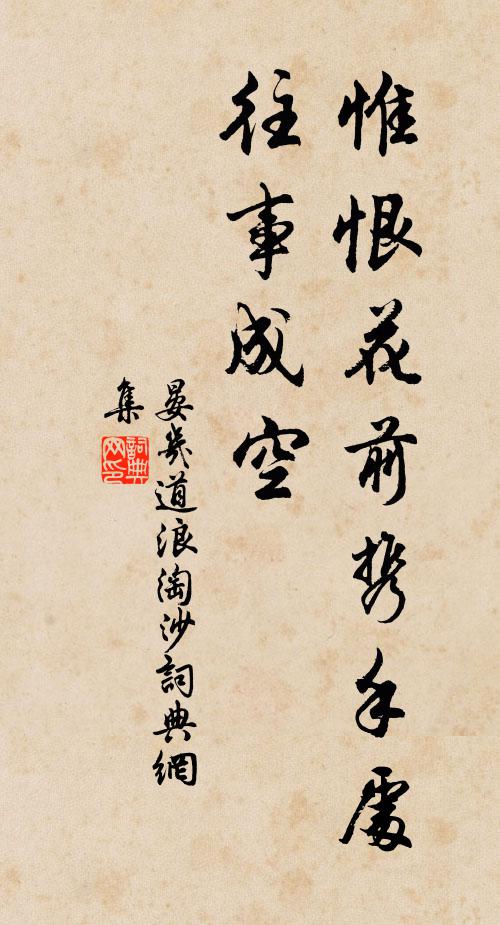 惟恨花前携手處
往事成空
晏幾道浪淘沙詞典網
集
詞典
网印